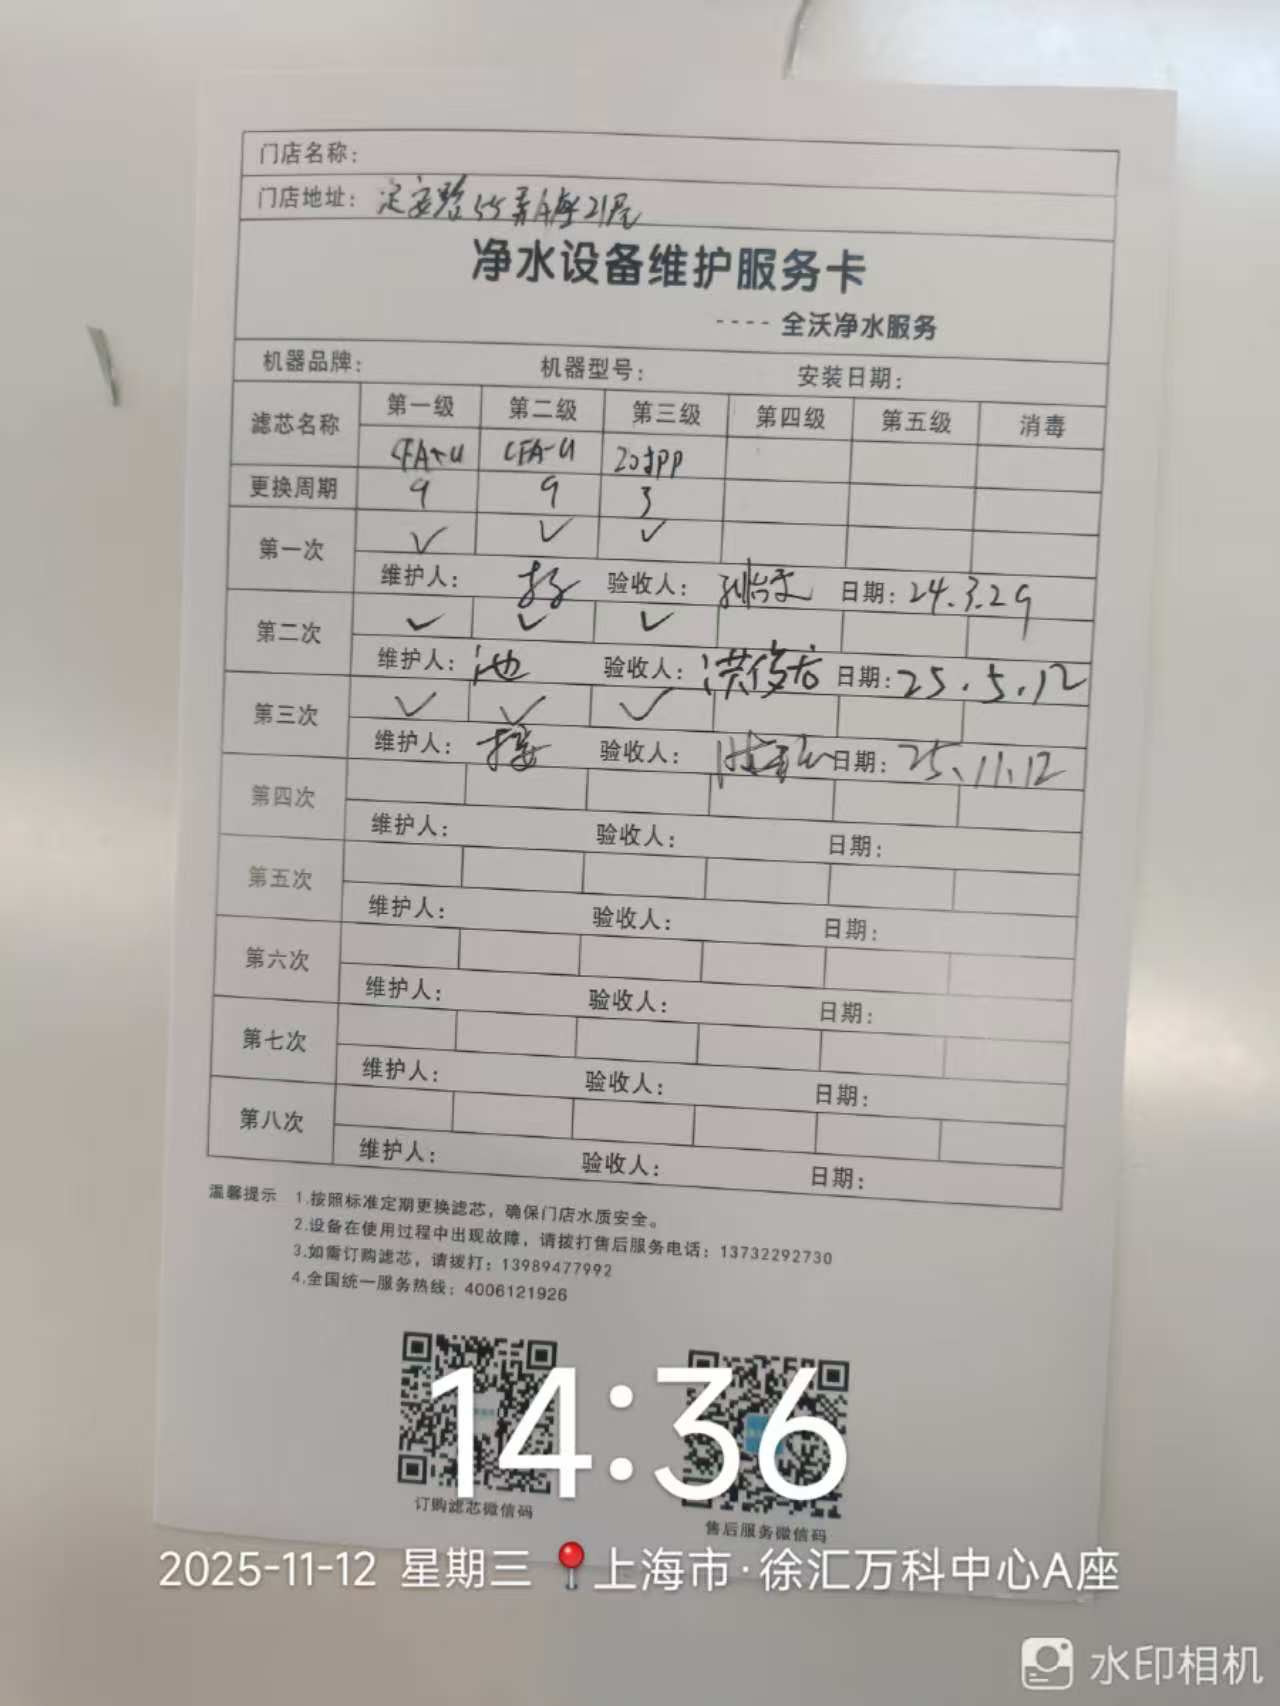 门店名称：
门店地址： 定安路55弄A栋21层
净水设备维护服务卡
---- 全沃净水服务
机器品牌： 机器型号： 安装日期：
滤芯名称 第一级 第二级 第三级 第四级 第五级 消毒
CFA-U 20寸PP
更换周期 9 9 3
第一次 ✓ ✓ ✓
维护人： 验收人： 日期：24.3.29
第二次 ✓ ✓ ✓
维护人：池 验收人：洪俊龙 日期：25.5.12
第三次 ✓ ✓ ✓
维护人： 验收人： 日期：25.11.12
第四次
维护人： 验收人： 日期：
第五次
维护人： 验收人： 日期：
第六次
维护人： 验收人： 日期：
第七次
维护人： 验收人： 日期：
第八次
维护人： 验收人： 日期：
温馨提示 1.按照标准定期更换滤芯，确保门店水质安全。
2.设备在使用过程中出现故障，请拨打售后服务电话：13732292730
3.如需订购滤芯，请拨打：13989477992
4.全国统一服务热线：4006121926
14:36
订购滤芯微信码 售后服务微信码
2025-11-12 星期三 上海市·徐汇万科中心A座
水印相机